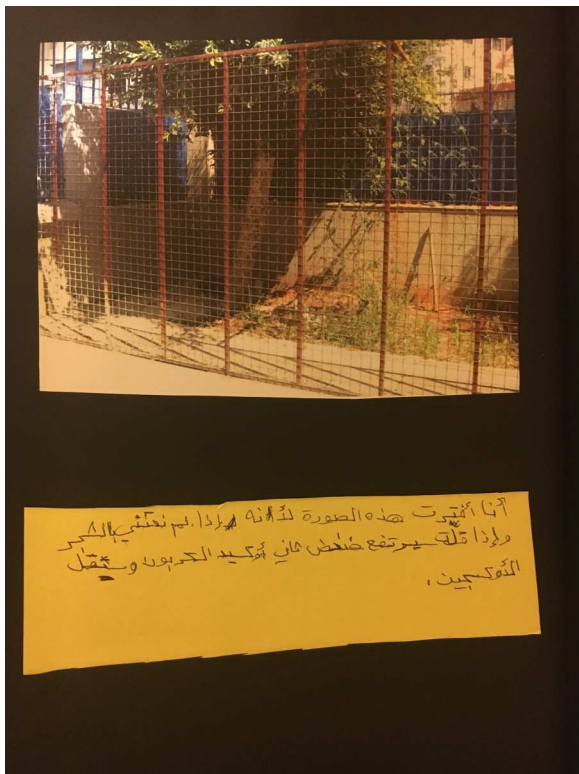 أنا أخترت هذه الصورة لأنه إذا لم نعتني بالشجر
وإذا قلّة سيرتفع ثاني أوكسيد الكربون وستقل
الأوكسجين.